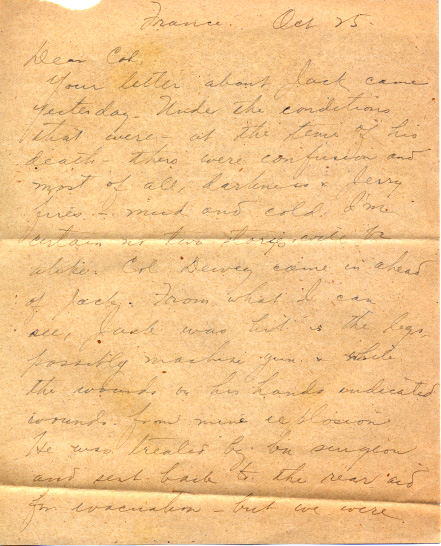 France. Oct 25.
Dear Col.
Your letter about Jack came
yesterday. Under the conditions
that were - at the time of his
death - there were confusion and
most of all, darkness & Jerry
fires - mud and cold. I'm
certain no two storys will be
alike. Col Dewey came in ahead
of Jack. From what I can
see, Jack was hit in the legs,
possibly machine gun & while
the wounds on his hands indicated
wounds from mine explosion
He was treated by bn surgeon
and sent back to the rear aid
for evacuation - but we were